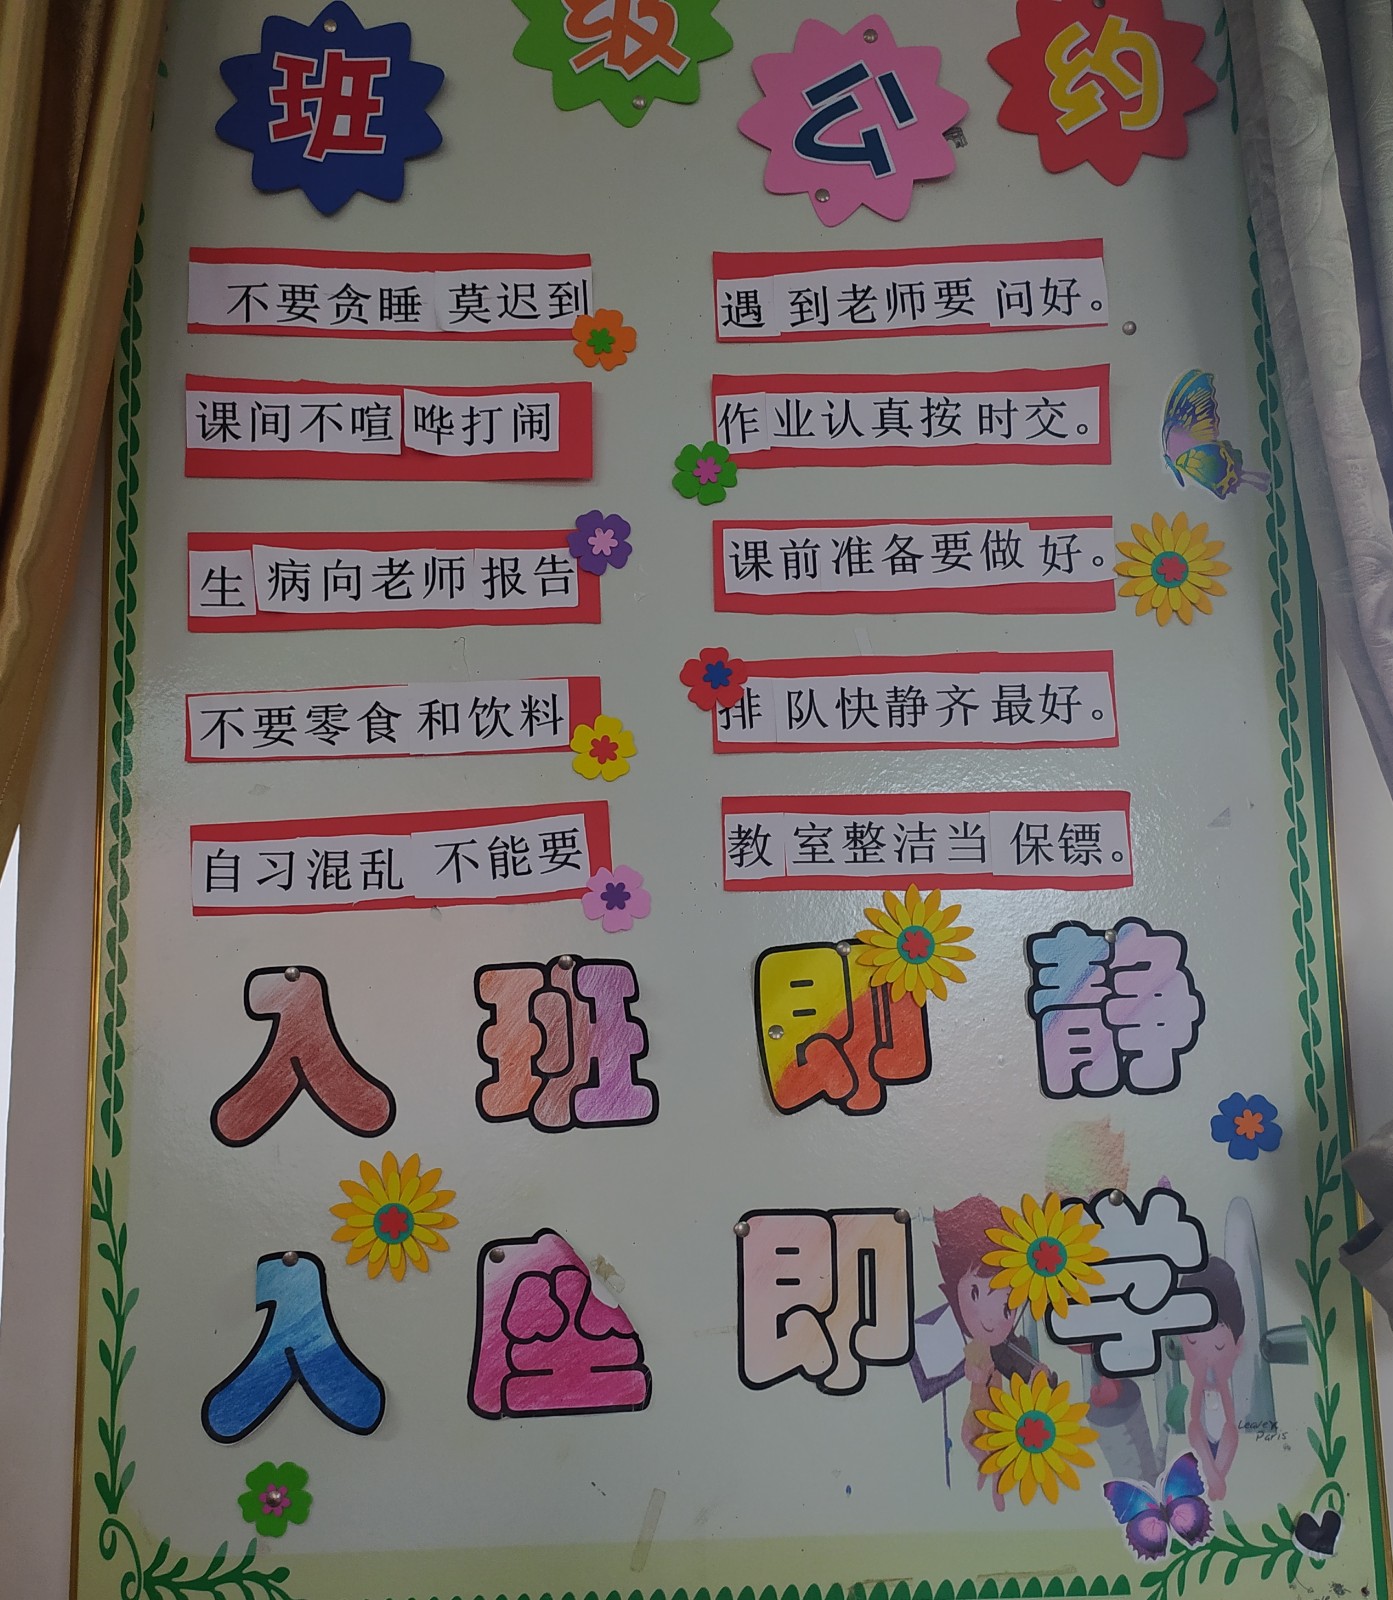 班级公约
不要贪睡 莫迟到 遇到老师要问好。
课间不喧哗打闹 作业认真按时交。
生病向老师报告 课前准备要做好。
不要零食和饮料 排队快静齐最好。
自习混乱 不能要 教室整洁当 保镖。
入班即静
入坐即学
Leavey
Paris